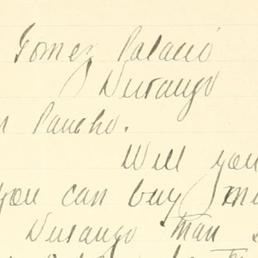 Gomez Palacio
Durango
Pancho.
Will you
you can buy me
Durango than